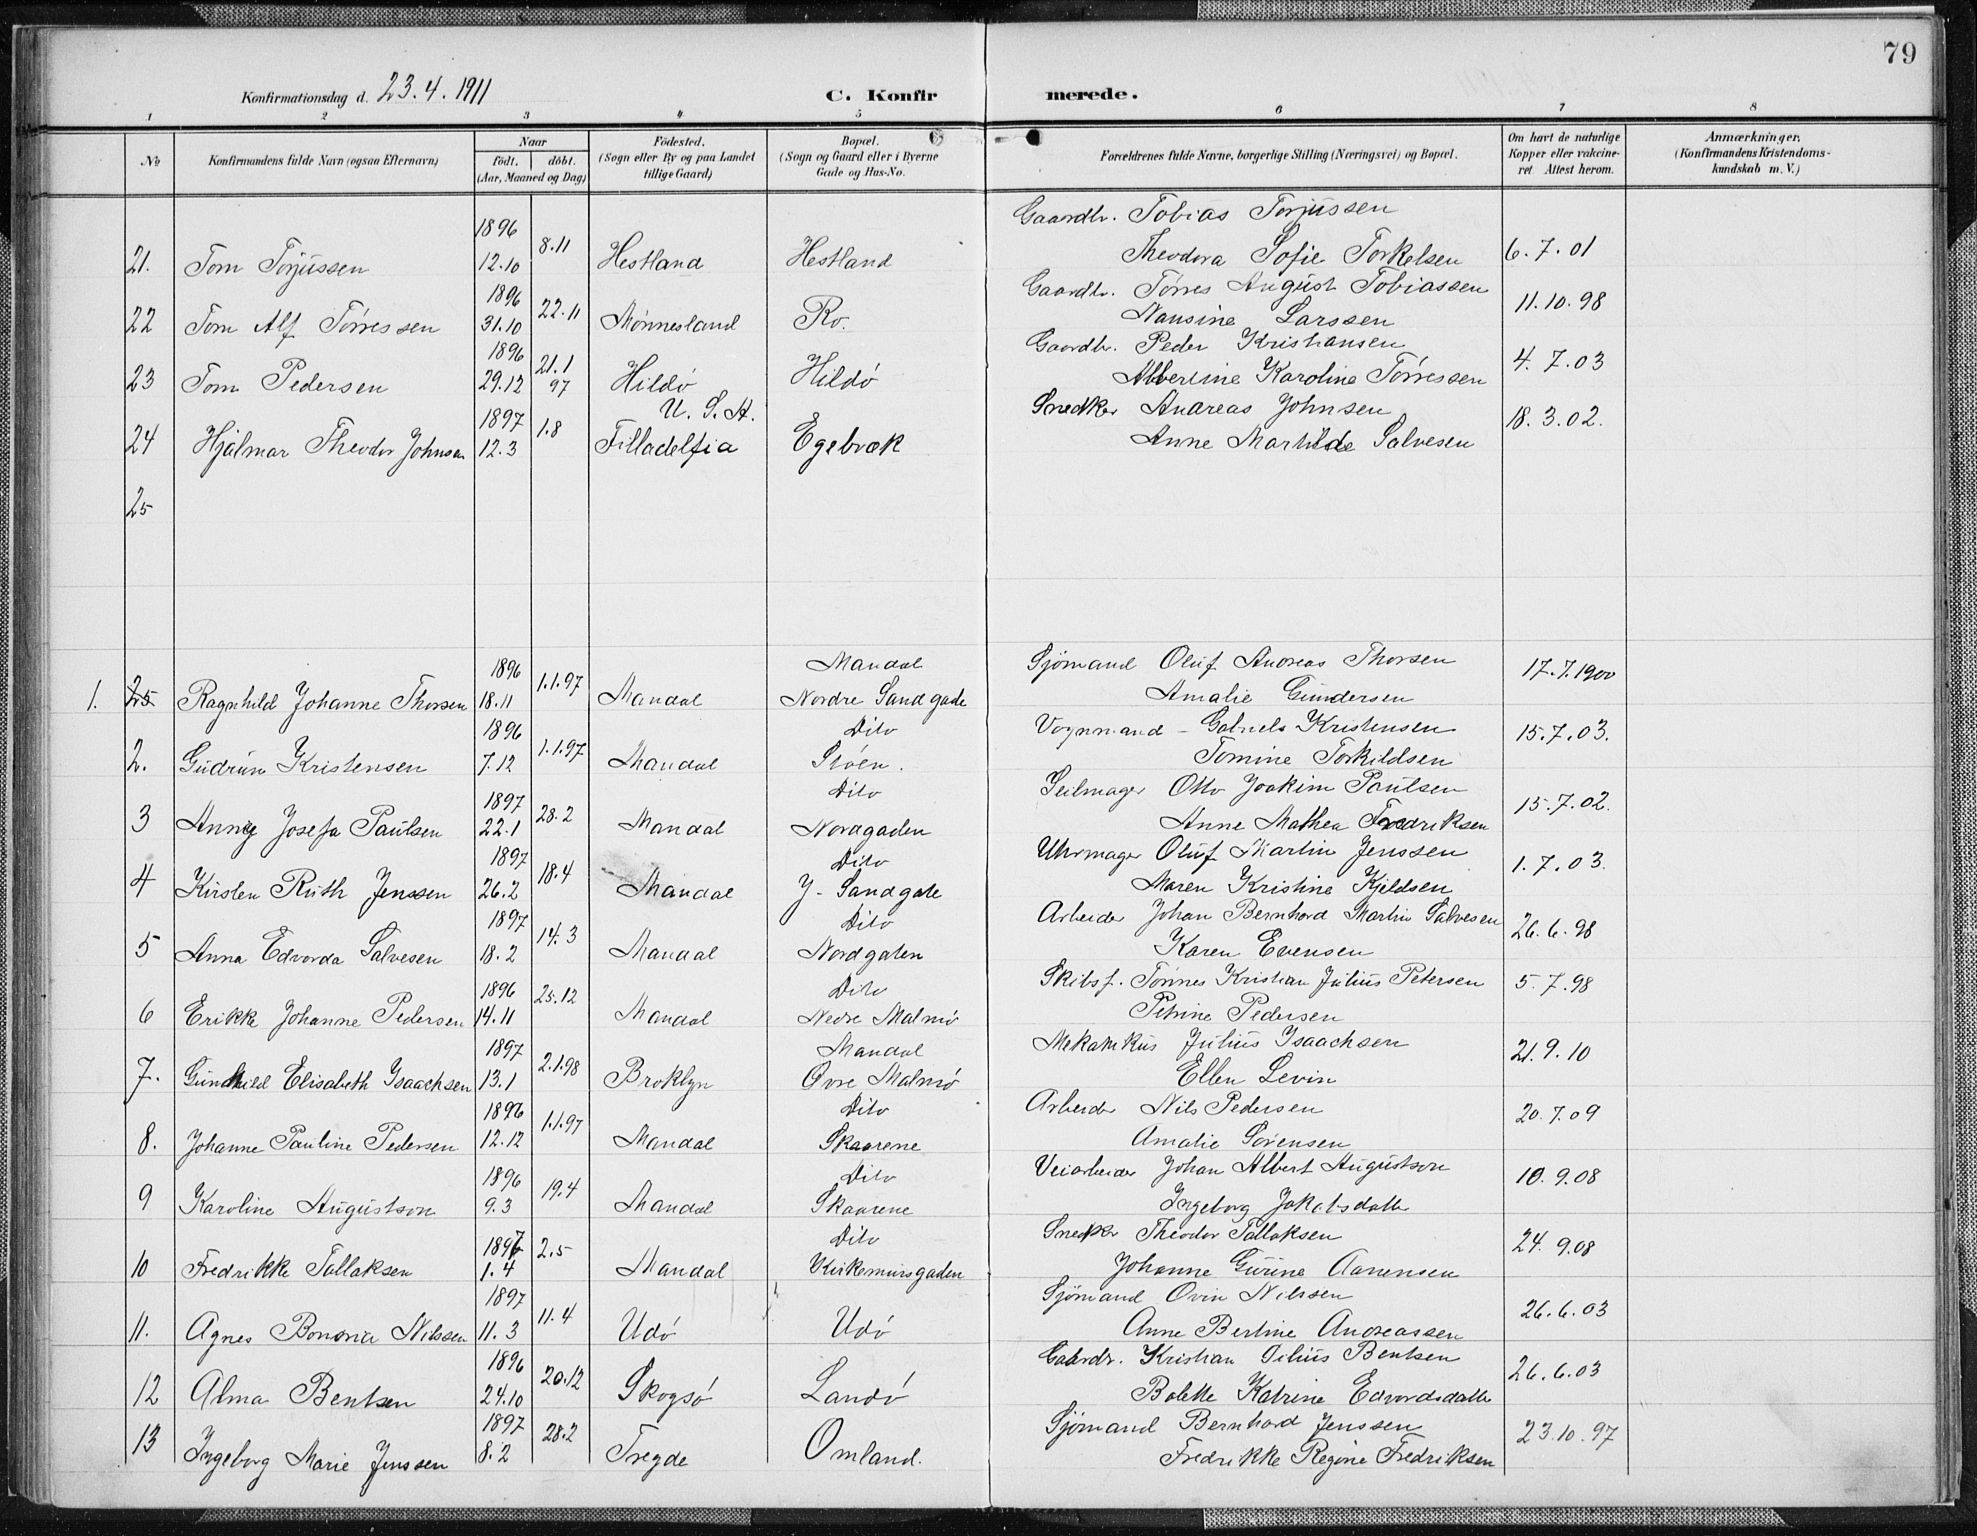 79
Konfirmationsdag d. 23.4.1911 C. Konfirmerede.
1 2 3 4 5 6 7 8
No Konfirmandens fulde Navn (ogsaa Efternavn) Naar Födt. döbt. (Aar, Maaned og Dag) Födested. (Sogn eller By og paa Landet tillige Gaard) Bopæl. (Sogn og Gaard eller i Byerne Gade og Hus-No. Forældrenes fulde Navne, borgerlige Stilling (Næringsvei) og Bopæl. Om havt de naturlige Kopper eller vakcineret Attest herom. Anmærkninger. (Konfirmandens Kristendomskundskab m. V.)
21. Tom Torjussen 1896 12.10 8.11 Hestland Hestland Gaardbr. Tobias Torjussen
Theodora Sofie Torkelsen 6.7.01
22 Tom Alf Tørressen 1896 31.10 22.11 Mønnesland Ro. Gaardbr. Tørres August Tobiassen
Nansine Larssen 11.10.98
23 Tom Pedersen 1896 29.12 21.1 97 Hildø Hildø Gaardbr. Peder Kristiansen
Albertine Karoline Tørressen 4.7.03
24 Hjalmar Theodor Johnsen 1897 12.3 1.8 U.S.A. Filladelfia Egebæk Snedker Andreas Johnsen
Anne Mathilde Salvesen 18.3.02.
25
1. 25 Ragnhild Johanne Thorsen 1896 18.11 1.1.97 Mandal Mandal Nordre Sandgade Sjömand Oluf Andreas Thorsen
Amalie Gundersen 17.7.1900
2. Gudrun Kristensen 1896 7.12 1.1.97 Mandal Dito Støen. Vognmand - Gabriels Kristensen
Tomine Torkildsen 15.7.03.
3 Anny Josefa Paulsen 1897 22.1 28.2 Mandal Dito Nordgaden Seilmager Otto Joakim Paulsen
Anne Mathea Fredriksen 15.7.02.
4 Kirsten Ruth Jenssen 1897 26.2 18.4 Mandal Dito Y- Sandgate Uhrmager Oluf Martin Jenssen
Maren Kristine Kjeldsen 1.7.03.
5 Anna Edvarda Salvesen 1897 18.2 14.3 Mandal Dito Nordgaten Arbeider Johan Bernhard Martin Salvesen
Karen Evensen 26.6.98
6 Erikke Johanne Pedersen 1896 14.11 25.12 Mandal Dito Nedre Malmø Skibsf. Tønnes Kristian Julius Petersen
Petrine Pedersen 5.7.98
7. Gunhild Elisabeth Isaachsen 1897 13.1 2.1.98 Broklyn Mandal Øvre Malmø Mekanikus Julius Isaachsen
Ellen Levin 21.9.10
8. Johanne Pauline Pedersen 1896 12.12 1.1.97 Mandal Dito Skaarene Arbeider Nils Pedersen
Amalie Sørensen 20.7.09
9 Karoline Augustson 1896 9.3 19.4 Mandal Dito Skaarene Veiarbeider Johan Albert Augustson
Ingeborg Jakobsdatter 10.9.08
10 Fredrikke Tallaksen 1897 1.4 2.5 Mandal Dito Kirkemursgaden Snekker Theodor Tallaksen
Johanne Gurine Aanensen 24.9.08
11. Agnes Nilssen 1897 11.3 11.4 Udø Udø Sjömand Ovin Nilssen
Anne Bertine Andreassen 26.6.03
12 Alma Bentsen 1896 24.10 20.12 Skogsø Landø Gaardr. Kristian Bentsen
Bolette Katrine Edvardsdatter 26.6.03
13 Ingeborg Marie Jenssen 1897 8.2 28.2 Tregde Omland. Sjömand Bernhard Jenssen
Fredrikke Regine Fredriksen 23.10.97